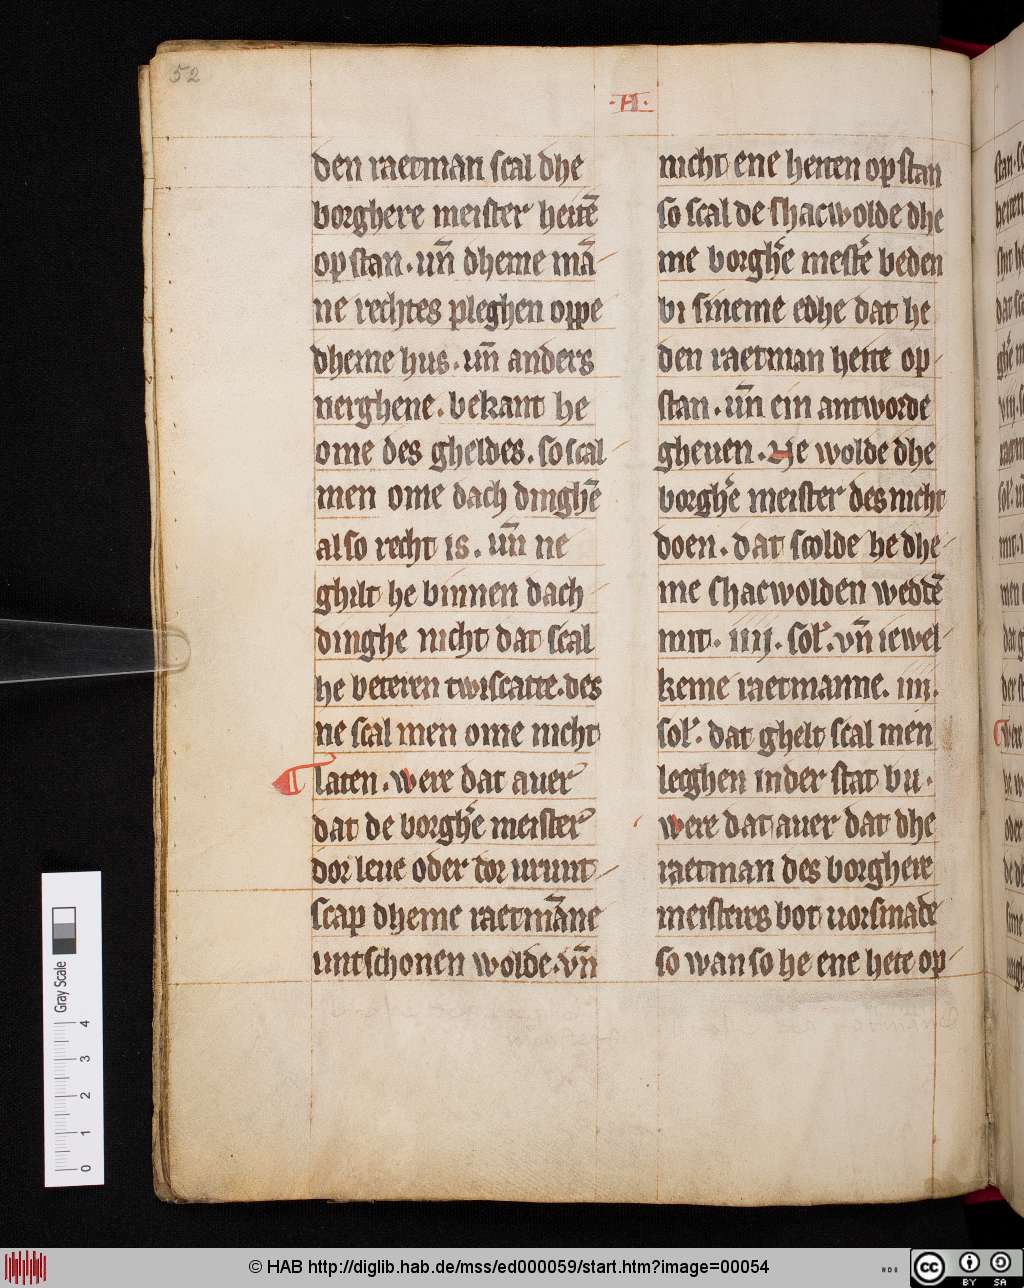 52
·H·
den raetman scal dhe
borghere meister heitē
op stan. un̄ dheme mā
ne rechtes pleghen oppe
dheme hus. un̄ anders
nerghene. bekant he
ome des gheldes. so scal
men ome dach dinghē
also recht is. un̄ ne
ghilt he binnen dach
dinghe nicht dat scal
he beteren twiscatte. des
ne scal men ome nicht
laten. were dat auer
dat de borgh̄e meister
dor leue oder dor urunt
scap dheme raetmāne
untschonen wolde. vn̄
nicht ene heiten op stan
so scal de shacwolde dhe
me borgh̄e mestē beden
bi sineme edhe dat he
den raetman heite op
stan. un̄ ein antworde
gheuen. He wolde dhe
borgh̄e meister des nicht
doen. dat scolde he dhe
me shacwolden weddē
mit. iiij. sol'. vn̄ iewel
keme raetmanne. iiij.
sol'. dat ghelt scal men
lecghen in der stat bu.
were dat auer dat dhe
raetman des borghere
meisteres bot uorsmade
so wan so he ene hete op
Gray Scale
0 1 2 3 4
© HAB http://diglib.hab.de/mss/ed000059/start.htm?image=00054
cc
BY SA